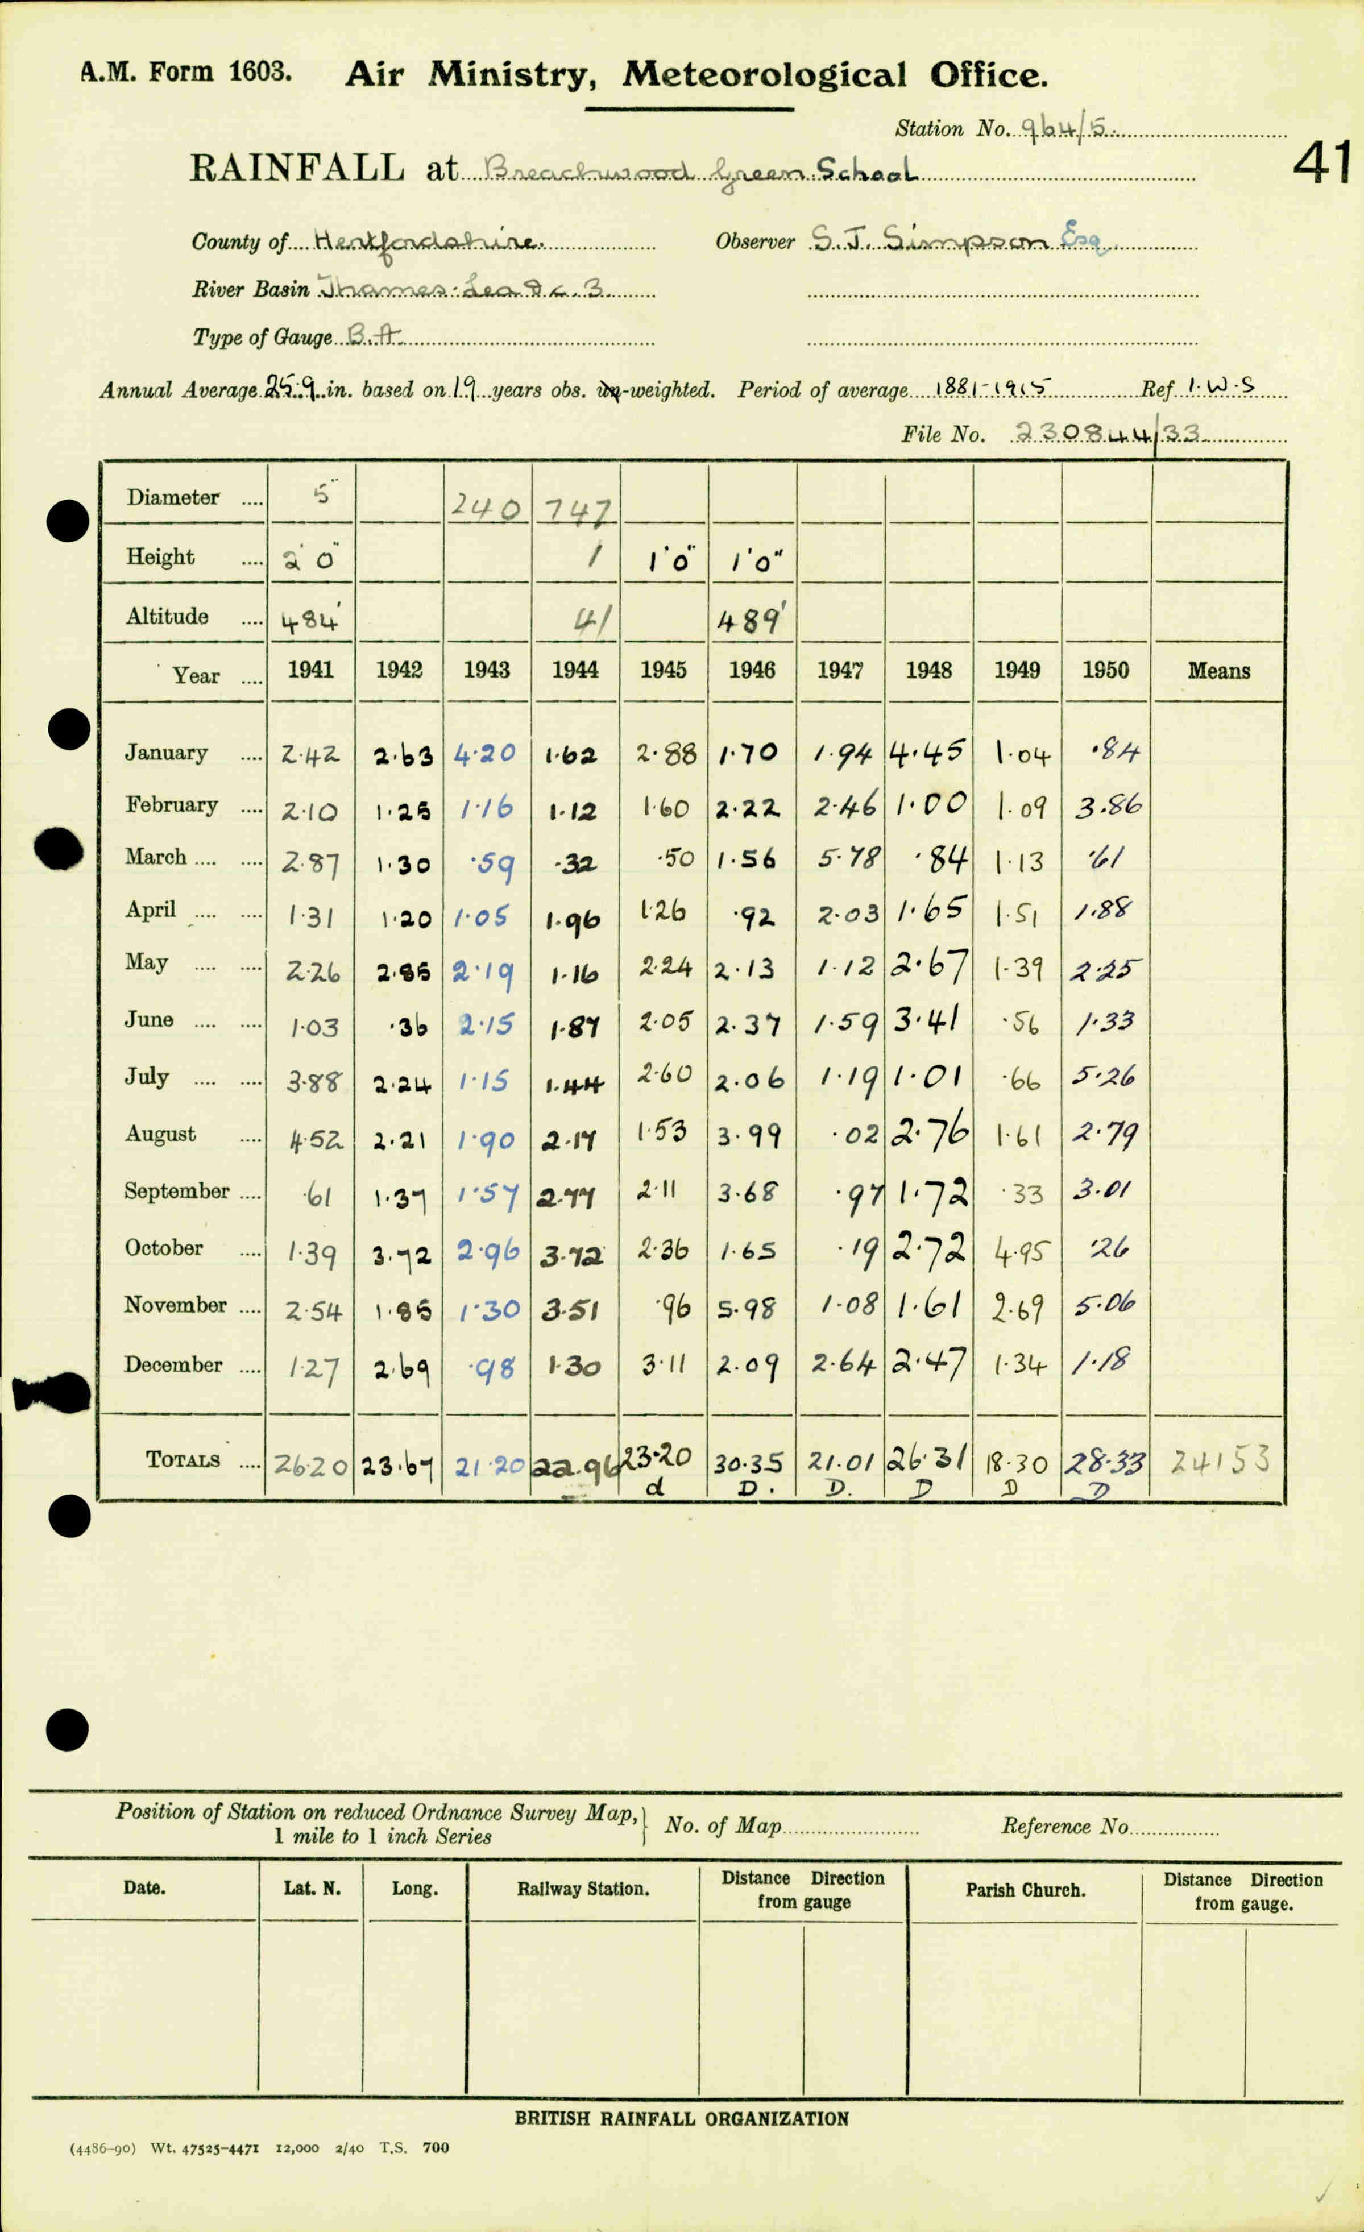 A.M. Form 1603. Air Ministry, Meteorological Office.
Station No. 964/5.
41
RAINFALL at Breachwood Green School
County of Hertfordshire. Observer S.J. Simpson Esq
River Basin Thames: Lea &c. 3
Type of Gauge B.A
Annual Average 25.9 in. based on 19 years obs. un-weighted. Period of average 1881-1915 Ref I.W.S
File No. 230844/33
Diameter .... 5" 240 747
Height .... 2'0" 1 1'0" 1'0"
Altitude .... 484' 41 489'
Year .... 1941 1942 1943 1944 1945 1946 1947 1948 1949 1950 Means
January .... 2.42 2.63 4.20 1.62 2.88 1.70 1.94 4.45 1.04 .84
February .... 2.10 1.25 1.16 1.12 1.60 2.22 2.46 1.00 1.09 3.86
March .... .... 2.87 1.30 .59 .32 .50 1.56 5.78 .84 1.13 .61
April .... .... 1.31 1.20 1.05 1.96 1.26 .92 2.03 1.65 1.51 1.88
May .... .... 2.26 2.85 2.19 1.16 2.24 2.13 1.12 2.67 1.39 2.25
June .... .... 1.03 .36 2.15 1.87 2.05 2.37 1.59 3.41 .56 1.33
July .... .... 3.88 2.24 1.15 1.44 2.60 2.06 1.19 1.01 .66 5.26
August .... 4.52 2.21 1.90 2.17 1.53 3.99 .02 2.76 1.61 2.79
September .... .61 1.37 1.57 2.77 2.11 3.68 .97 1.72 .33 3.01
October .... 1.39 3.72 2.96 3.72 2.36 1.65 .19 2.72 4.95 .26
November .... 2.54 1.85 1.30 3.51 .96 5.98 1.08 1.61 2.69 5.06
December .... 1.27 2.69 .98 1.30 3.11 2.09 2.64 2.47 1.34 1.18
TOTALS .... 26.20 23.67 21.20 22.96 23.20 30.35 21.01 26.31 18.30 28.33 24153
d D. D. D D D
Position of Station on reduced Ordnance Survey Map, } No. of Map Reference No.
1 mile to 1 inch Series
Date. Lat. N. Long. Railway Station. Distance Direction from gauge Parish Church. Distance Direction from gauge.
BRITISH RAINFALL ORGANIZATION
(4486-90) Wt. 47525-4471 12,000 2/40 T.S. 700